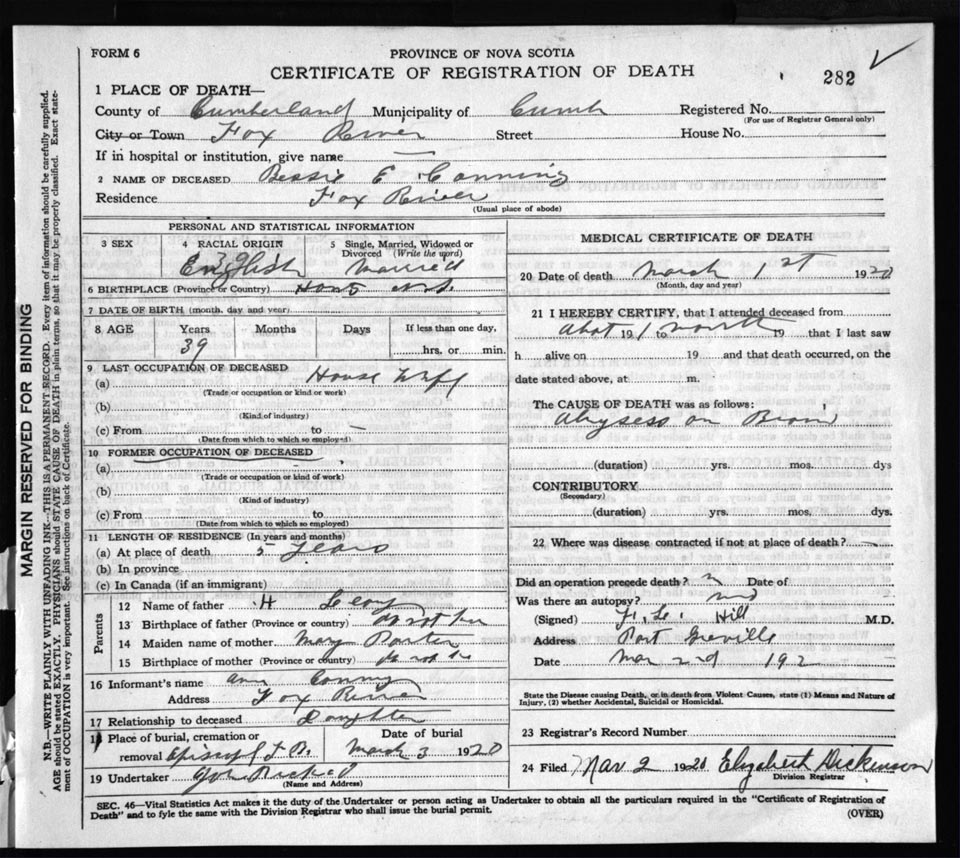 FORM 6
PROVINCE OF NOVA SCOTIA
CERTIFICATE OF REGISTRATION OF DEATH
282
1 PLACE OF DEATH—
County of Cumberland Municipality of Cumb Registered No.
(For use of Registrar General only)
City or Town Fox River Street House No.
If in hospital or institution, give name —
2 NAME OF DECEASED Bessie E Canning
Residence Fox River
(Usual place of abode)
PERSONAL AND STATISTICAL INFORMATION
3 SEX
4 RACIAL ORIGIN
English
5 Single, Married, Widowed or Divorced (Write the word)
Married
6 BIRTHPLACE (Province or Country)
7 DATE OF BIRTH (month, day and year)
8 AGE Years Months Days If less than one day,
39 hrs. or min.
9 LAST OCCUPATION OF DECEASED House Wife
(a)
(Trade or occupation or kind or work)
(b)
(Kind of industry)
(c) From to —
(Date from which to which so employed)
10 FORMER OCCUPATION OF DECEASED
(a)
(Trade or occupation or kind of work)
(b)
(Kind of industry)
(c) From to
(Date from which to which so employed)
11 LENGTH OF RESIDENCE (In years and months)
(a) At place of death 5 Years
(b) In province
(c) In Canada (if an immigrant)
Parents
12 Name of father H
13 Birthplace of father (Province or country) do not
14 Maiden name of mother Mary
15 Birthplace of mother (Province or country) do not
16 Informant's name
Address Fox River
17 Relationship to deceased Daughter
18 Place of burial, cremation or removal
Date of burial
March 3 1920
19 Undertaker
(Name and Address)
MEDICAL CERTIFICATE OF DEATH
20 Date of death March 1st 1920
(Month, day and year)
21 I HEREBY CERTIFY, that I attended deceased from
Abot 191 to month 19 that I last saw
h alive on 19 and that death occurred, on the
date stated above, at m.
The CAUSE OF DEATH was as follows:
Abysess on Brain
(duration) yrs. mos. dys
CONTRIBUTORY
(Secondary)
(duration) yrs. mos. dys.
22 Where was disease contracted if not at place of death?
Did an operation precede death? n Date of
Was there an autopsy?
(Signed) Hill M.D.
Address Port Greville
Date Mar 2nd 192
State the Disease causing Death, or in death from Violent Causes, state (1) Means and Nature of
Injury, (2) whether Accidental, Suicidal or Homicidal.
23 Registrar's Record Number
24 Filed Mar 2 1920 Elizabeth Dickinson
Division Registrar
SEC. 46—Vital Statistics Act makes it the duty of the Undertaker or person acting as Undertaker to obtain all the particulars required in the "Certificate of Registration of
Death" and to fyle the same with the Division Registrar who shall issue the burial permit. (OVER)
MARGIN RESERVED FOR BINDING
N.B.—WRITE PLAINLY WITH UNFADING INK—THIS IS A PERMANENT RECORD. Every item of information should be carefully supplied.
AGE should be stated EXACTLY. PHYSICIANS should STATE CAUSE OF DEATH in plain terms, so that it may be properly classified. Exact state-
ment of OCCUPATION is very important. See instructions on back of Certificate.